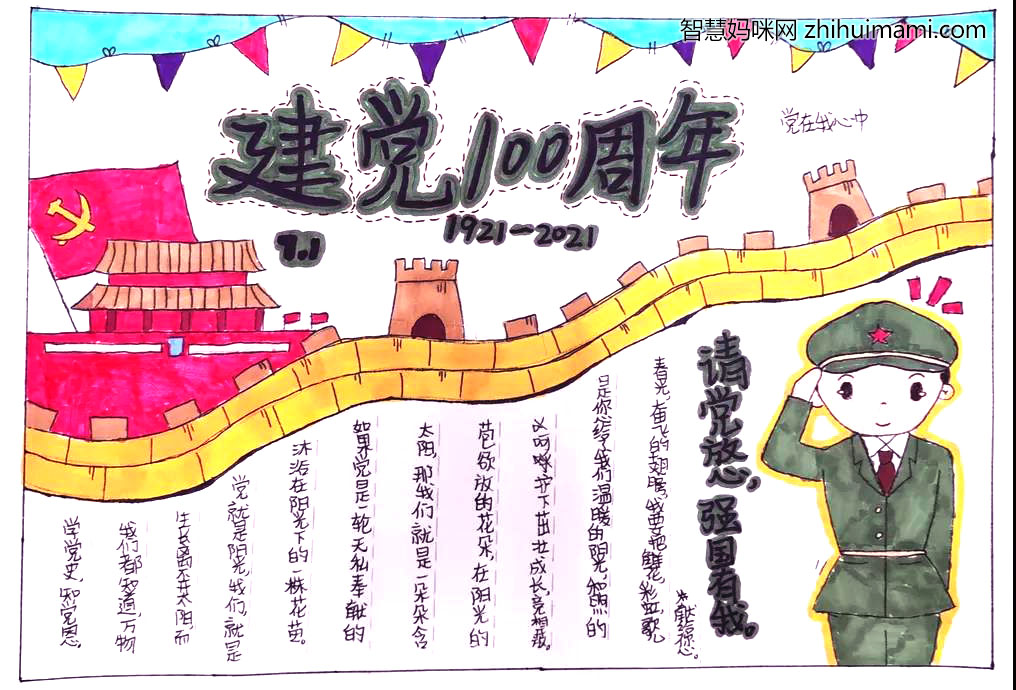 智慧妈咪网 zhihuimami.com
建党100周年
党在我心中
7.1
1921—2021
请党放心,强国有我。
学党史,知党恩,
我们都知道,万物
生长离不开太阳,而
党就是阳光,我们就是
沐浴在阳光下的一株花苗。
如果党是一轮无私奉献的
太阳,那我们就是一朵朵含
苞欲放的花朵,在阳光的
呵护下茁壮成长,竞相
是你给了我们温暖的阳光,和煦的
春光,奋飞的翅膀。我要把鲜花,彩虹,歌,
献给您。